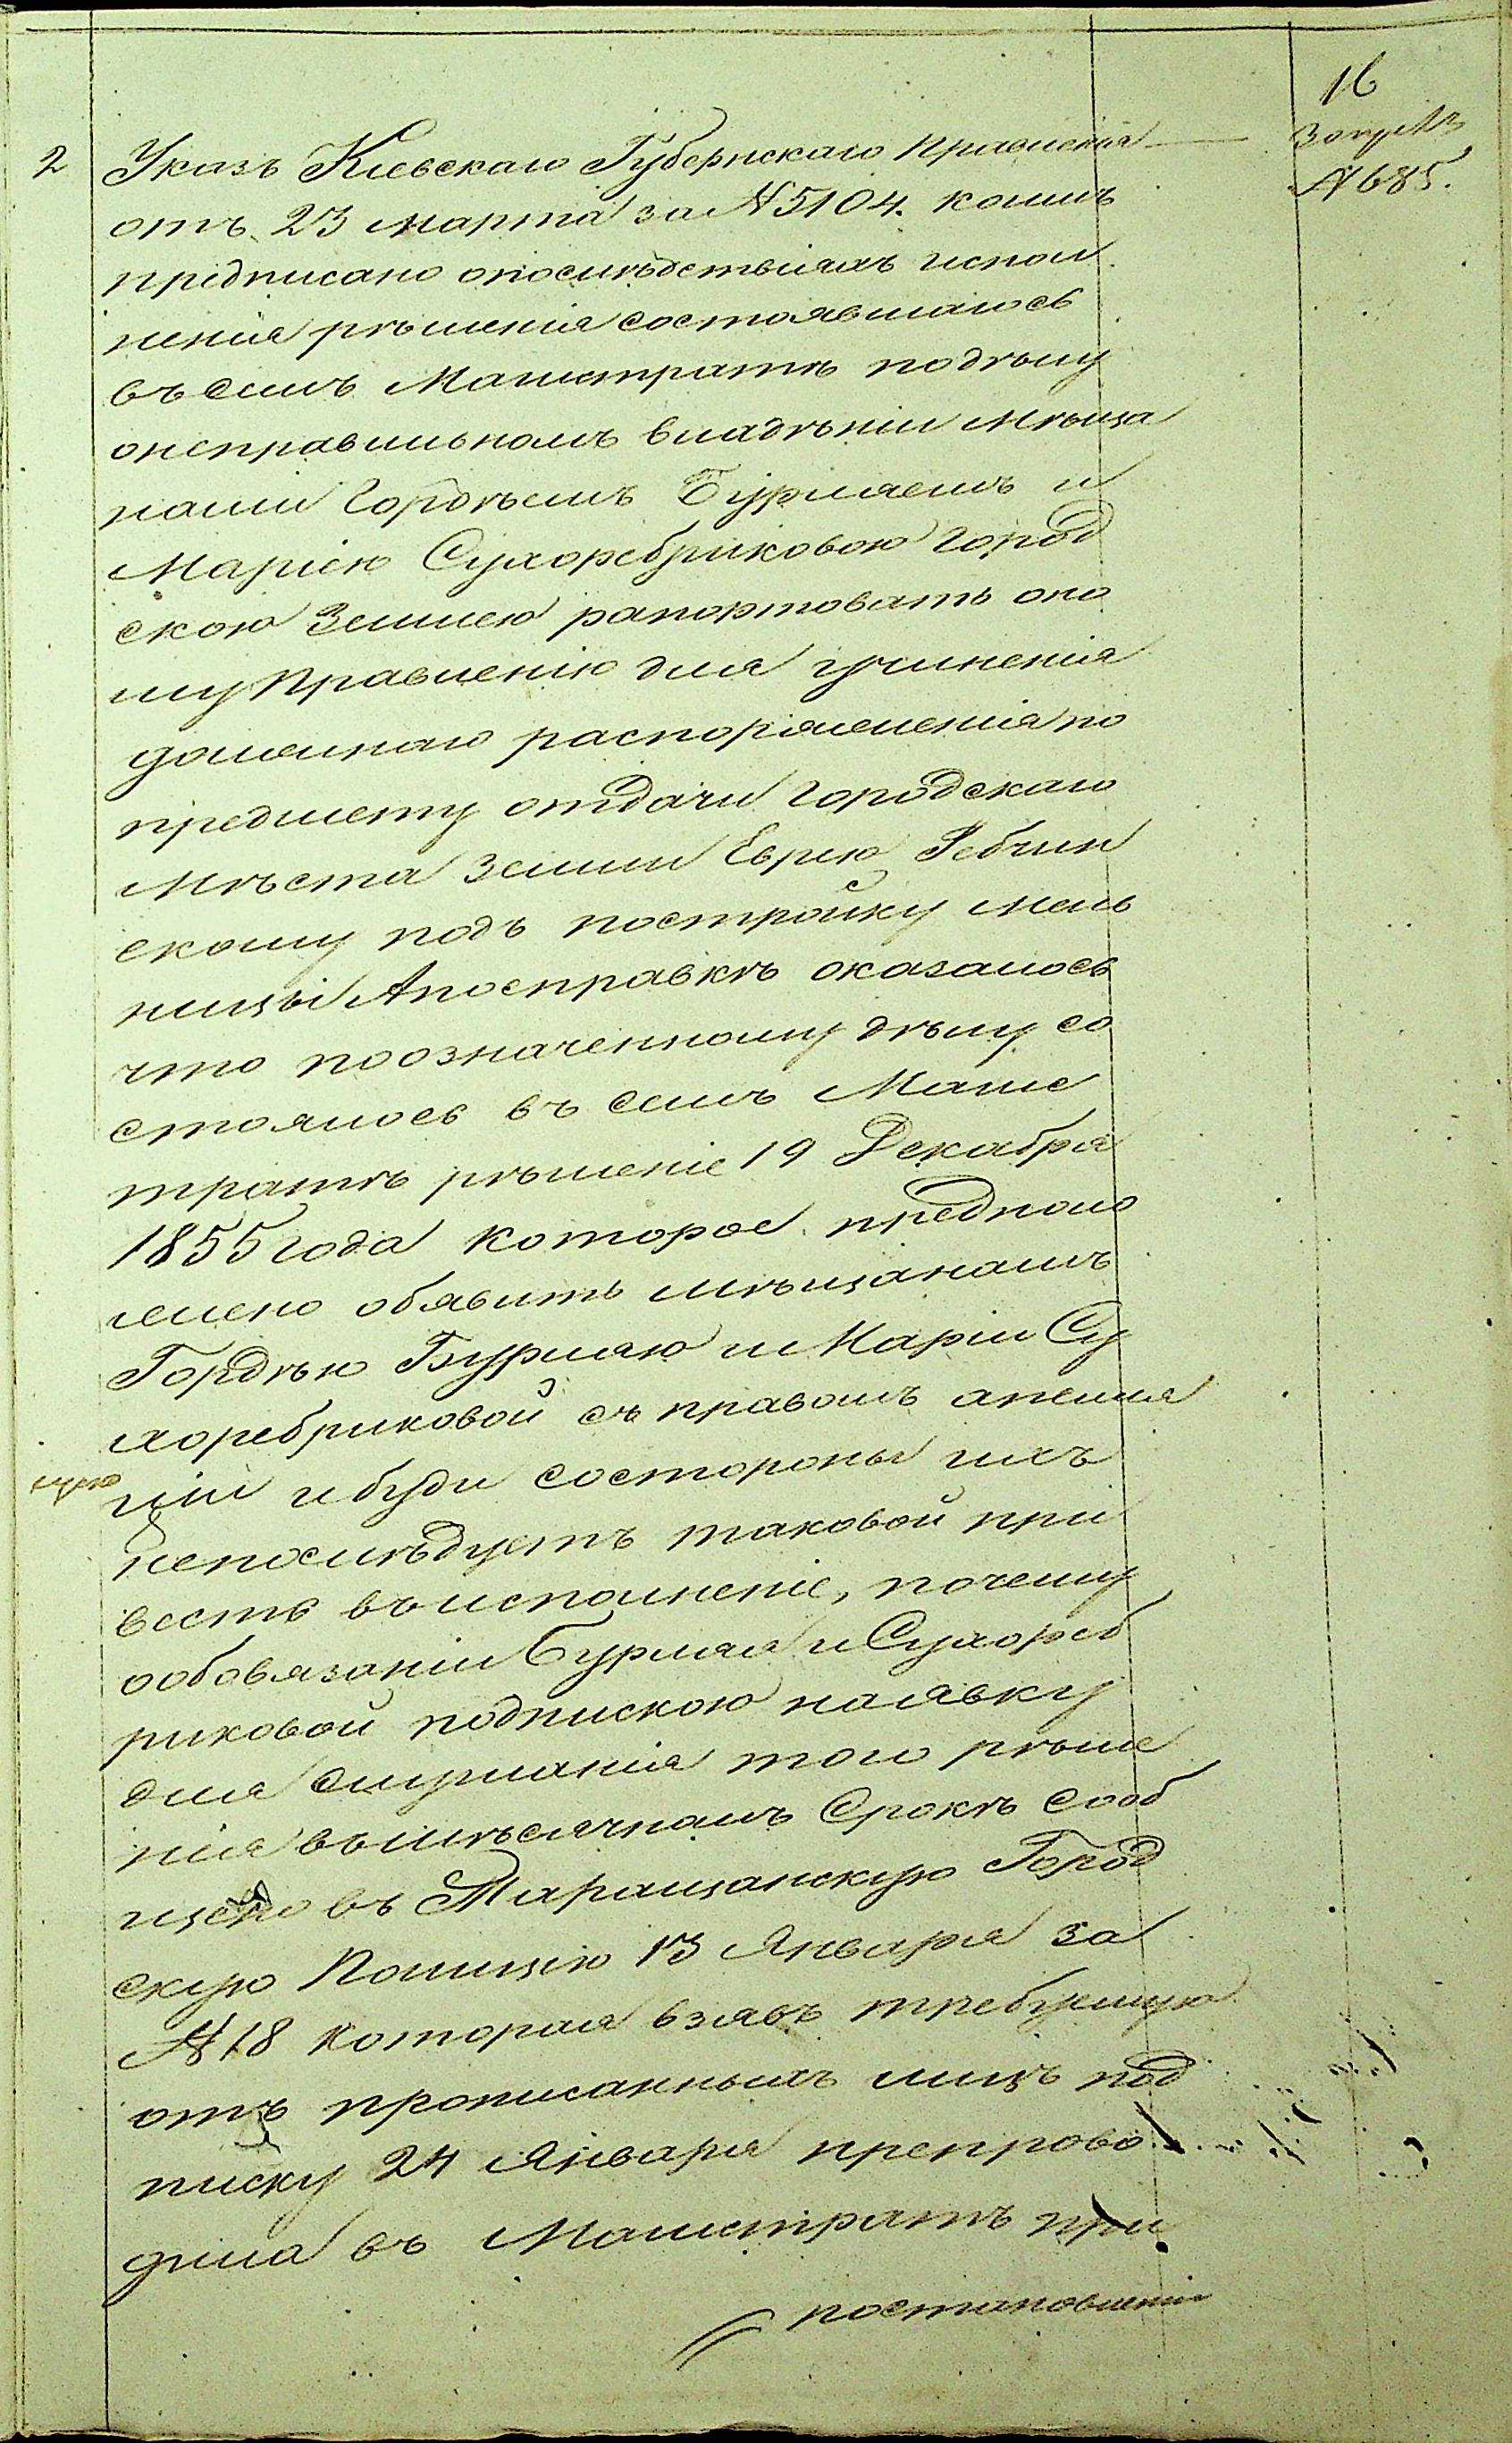 16
2 Указъ Кіевскаго Губернскаго Правленія — 3 апрѣля
отъ 23 марта за №5104. коимъ №685.
предписано опослѣдствіяхъ испол
ненія рѣшенія состоявшагось
въ семъ Магистратѣ подѣлу
онеправильномъ владѣніи Мѣща
нами Гордѣемъ Бурлаемъ и
Маріею Сухоребриковою Город
скою Землею рапортовать оно
му Правленію для учиненія
должнаго распоряженія по
предмету отдачи Городскаго
Мѣста Земли Еврею Ребчин
скому подъ постройку мель
ницы Апосправкѣ оказалось
что поозначенному дѣлу со
стоялось въ семъ Магис
тратѣ рѣшеніе 19 Декабря
1855 года которое предполо
жено обявить мѣщанамъ
Гордѣю Бурлаю и Маріи Су
хоребриковой съ правомъ апелля
ціи и буди состороны ихъ
непослѣдуетъ таковой при
весть въ исполненіе, почему
ообовязаніи Бурлая и Сухореб
риковой подпискою на явку
для слушанія того рѣше
нія въ мѣсячномъ срокѣ сооб
щено въ Таращанскую Город
скую Полицію 13 Января за
№18 которая взявъ требуемую
отъ прописанныхъ лицъ под
писку 24 Января препрово
дила въ Магистратъ при
постановленіи